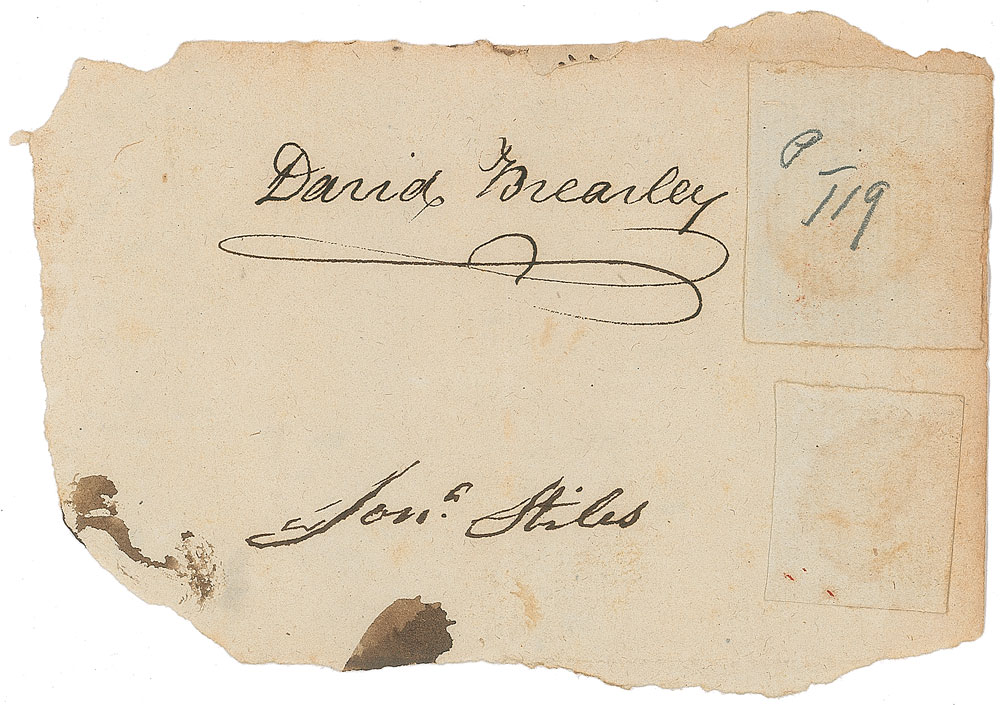 David Brearley
P 119
Jonª. Stiles